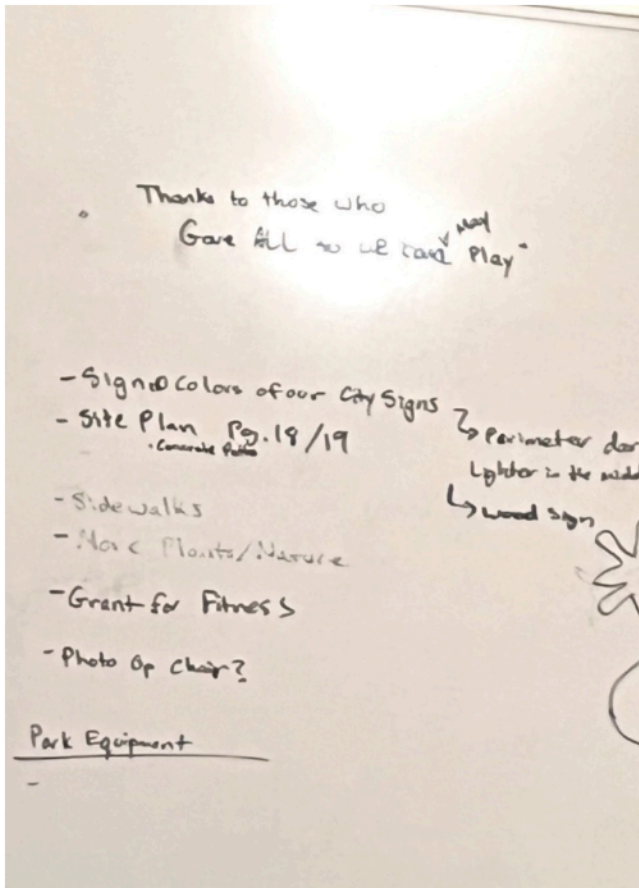 Thanks to those who
May
Gave ALL so we can Play"
- Sign Colors of our City Signs
- Site Plan Pg. 18/19
• Concrete Paths
Perimeter dar
Lighter in the midd
wood sign
- Sidewalks
- More Plants/Nature
- Grant for Fitness
- Photo Op Chair?
Park Equipment
-